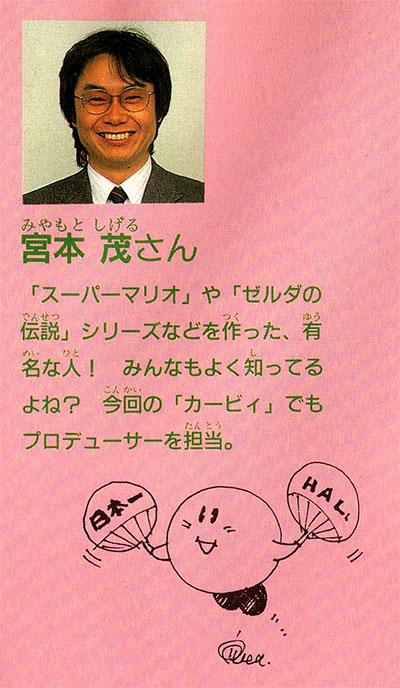 みやもと しげる
宮本 茂さん
「スーパーマリオ」や「ゼルダの
でんせつ つく ゆう
伝説」シリーズなどを作った、有
めい ひと し
名な人！ みんなもよく知ってる
こんかい
よね？ 今回の「カービィ」でも
たんとう
プロデューサーを担当。
日本一
HAL